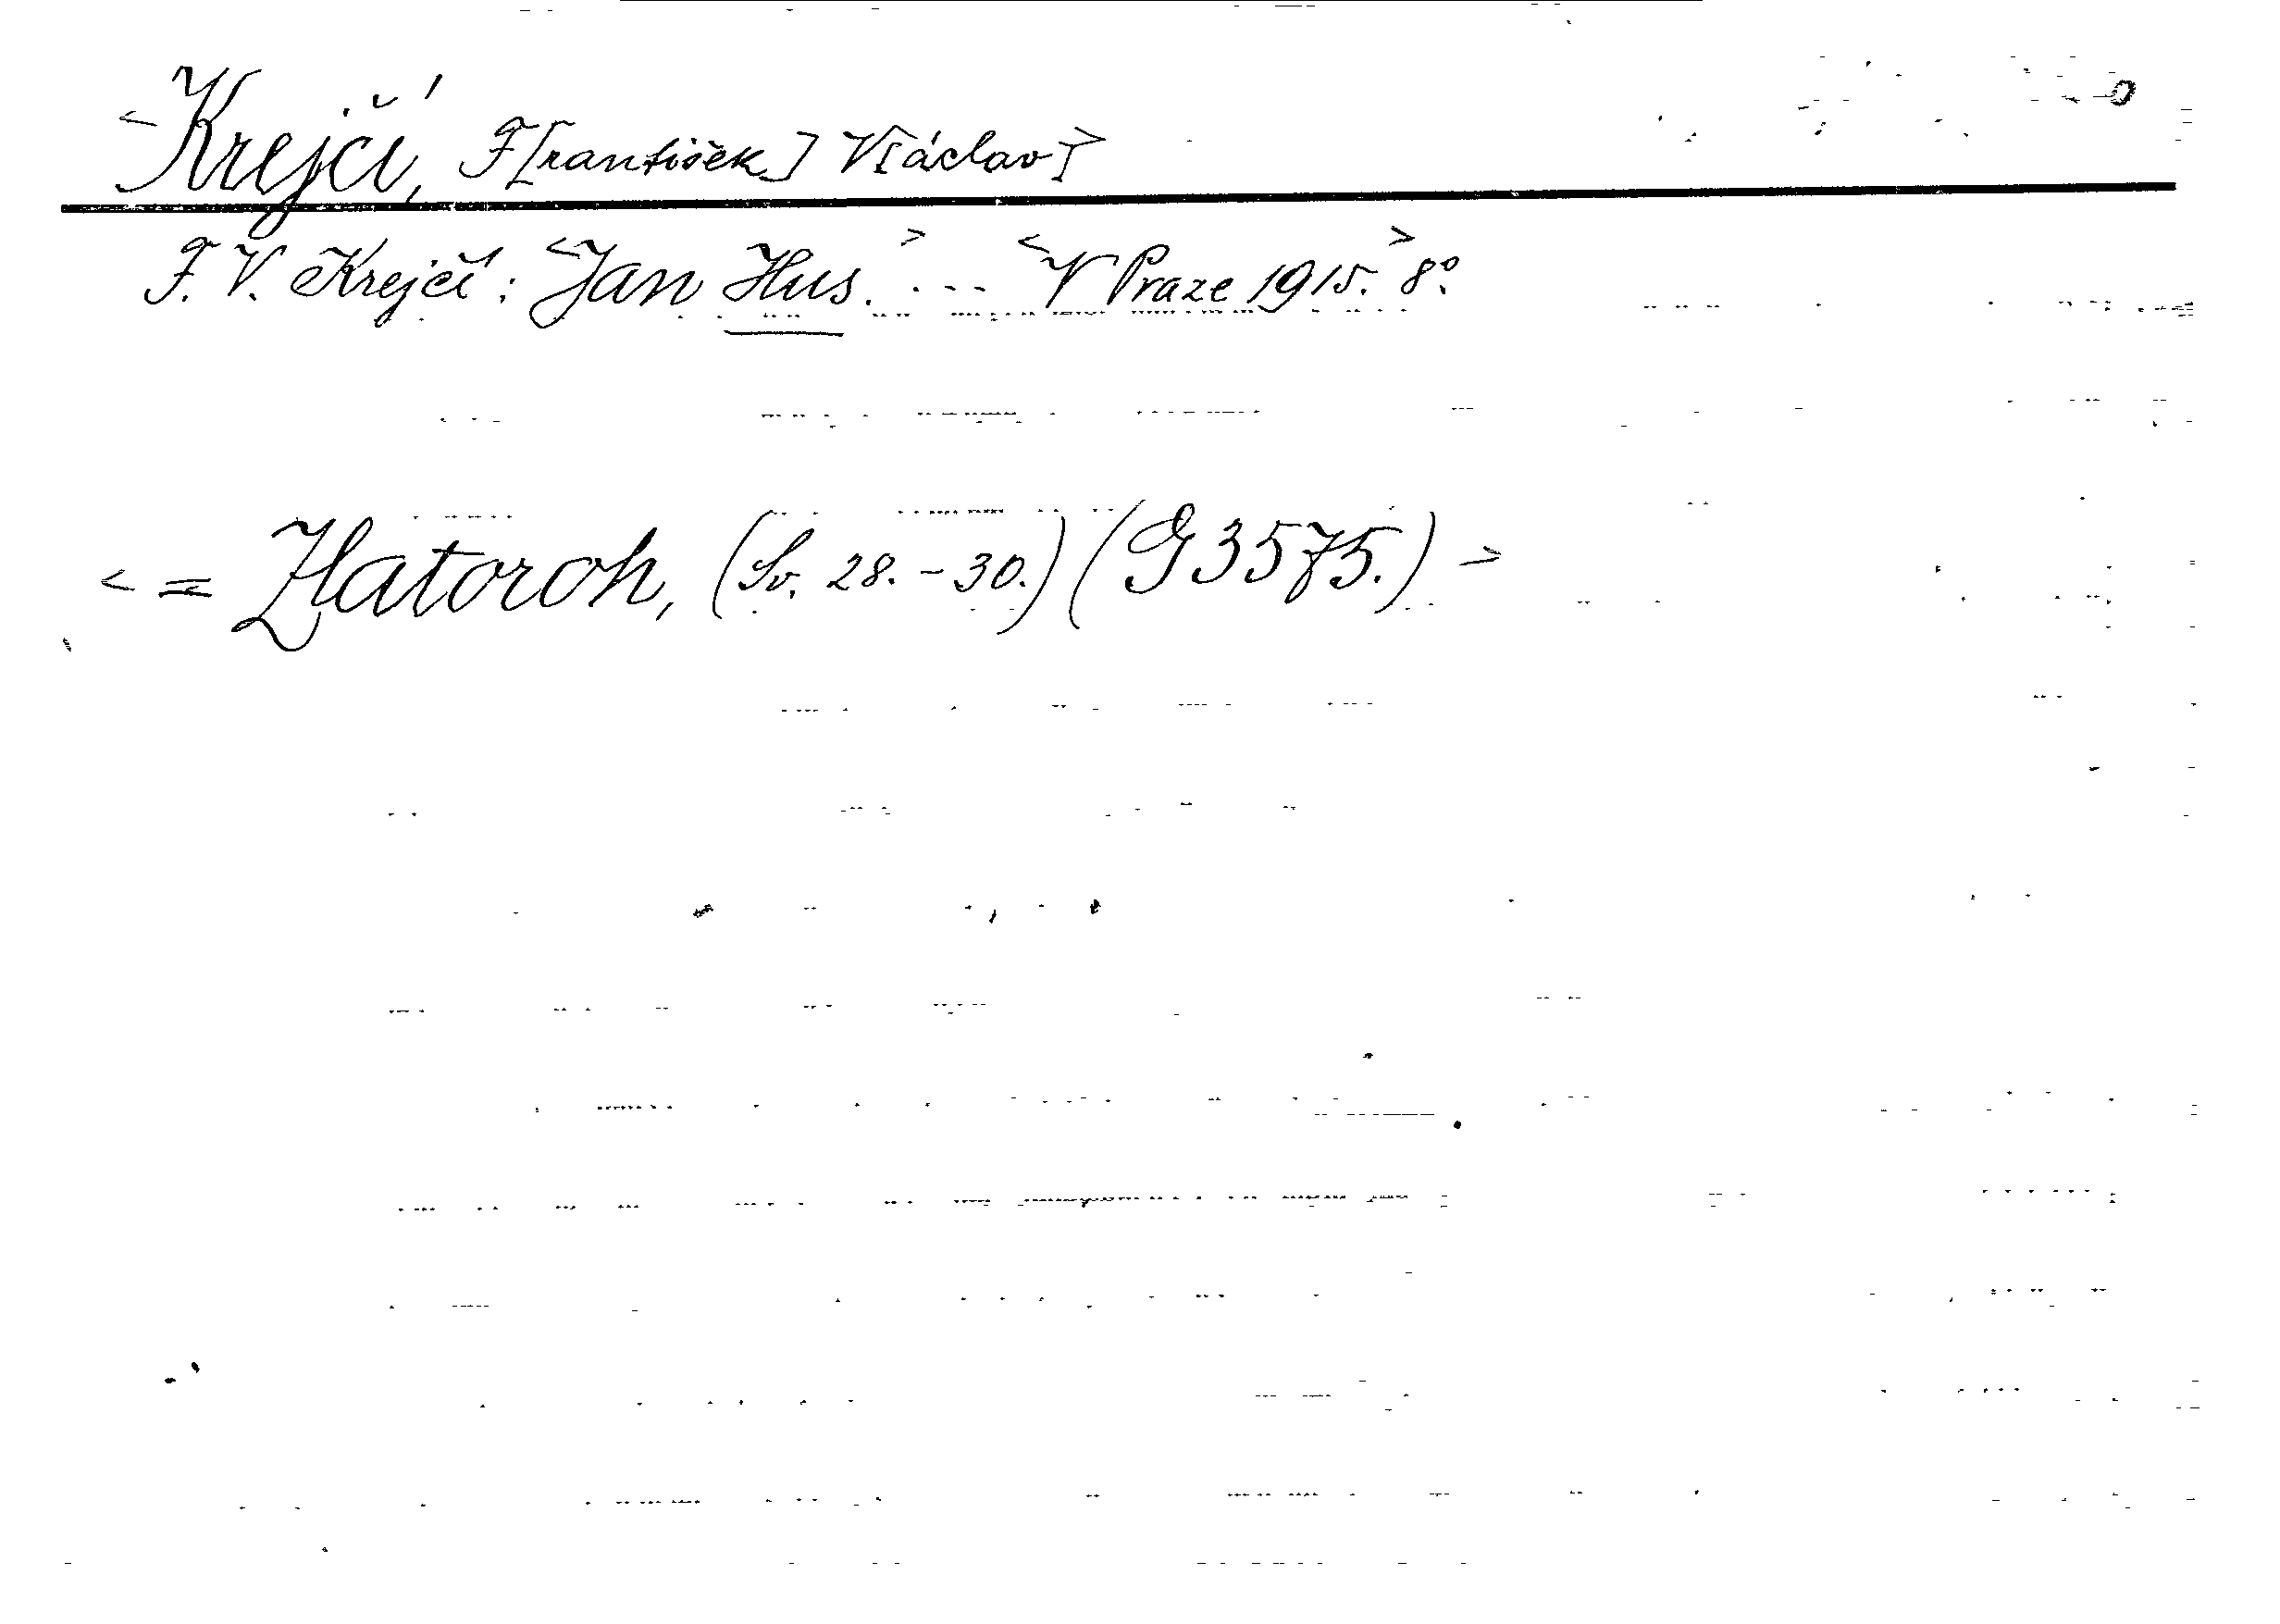 <Krejčí, F[rantišek] V[áclav]>
F. V. Krejčí: <Jan Hus.> ... <V Praze 1915.> 8°.
< = Zlatoroh, (Sv. 28. - 30.) (G 3575.) >